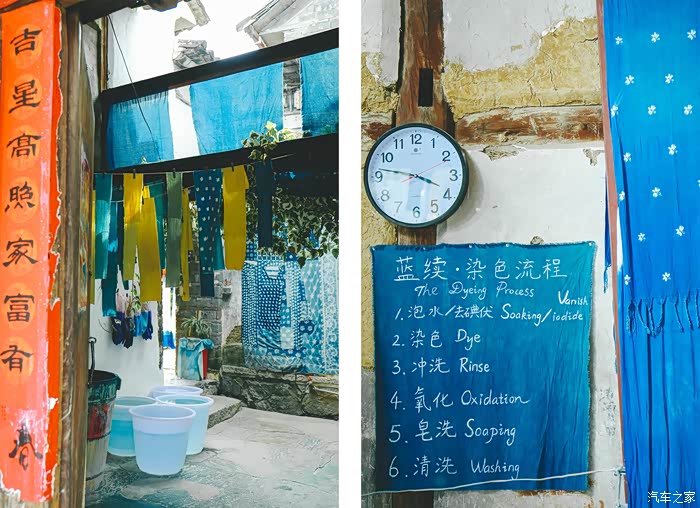 吉星高照家富有
12
1
2
3
4
5
6
7
8
9
10
11
蓝续·染色流程
The Dyeing Process
Vanish
1. 泡水/去碘伏 Soaking/iodide
2. 染色 Dye
3. 冲洗 Rinse
4. 氧化 Oxidation
5. 皂洗 Soaping
6. 清洗 Washing
汽车之家